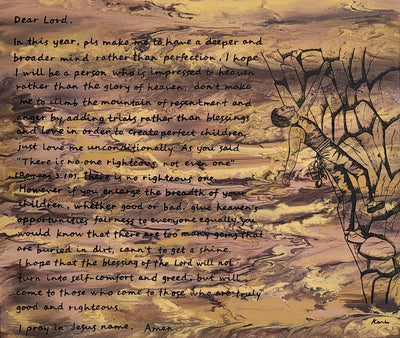 Dear Lord,
In this year, pls make me to have a deeper and
broader mind rather than perfection, I hope
I will be a person who is impressed to heaven
rather than the glory of heaven, don't make
me to climb the mountain of resentment and
anger by adding trials rather than blessings
and love in order to create perfect children,
just love me unconditionally. As you said
"There is no one righteous, not even one"
(Romans 3:10), there is no righteous one.
However if you enlarge the breadth of your
children, whether good or bad, give heaven's
opportunities fairness to everyone equally, you
would know that there are too many gems that
are buried in dirt, cann't to get a shine.
I hope that the blessing of the Lord will not
turn into self-comfort and greed, but will
come to those who come to those who are truly
good and righteous.
I pray in Jesus name. Amen